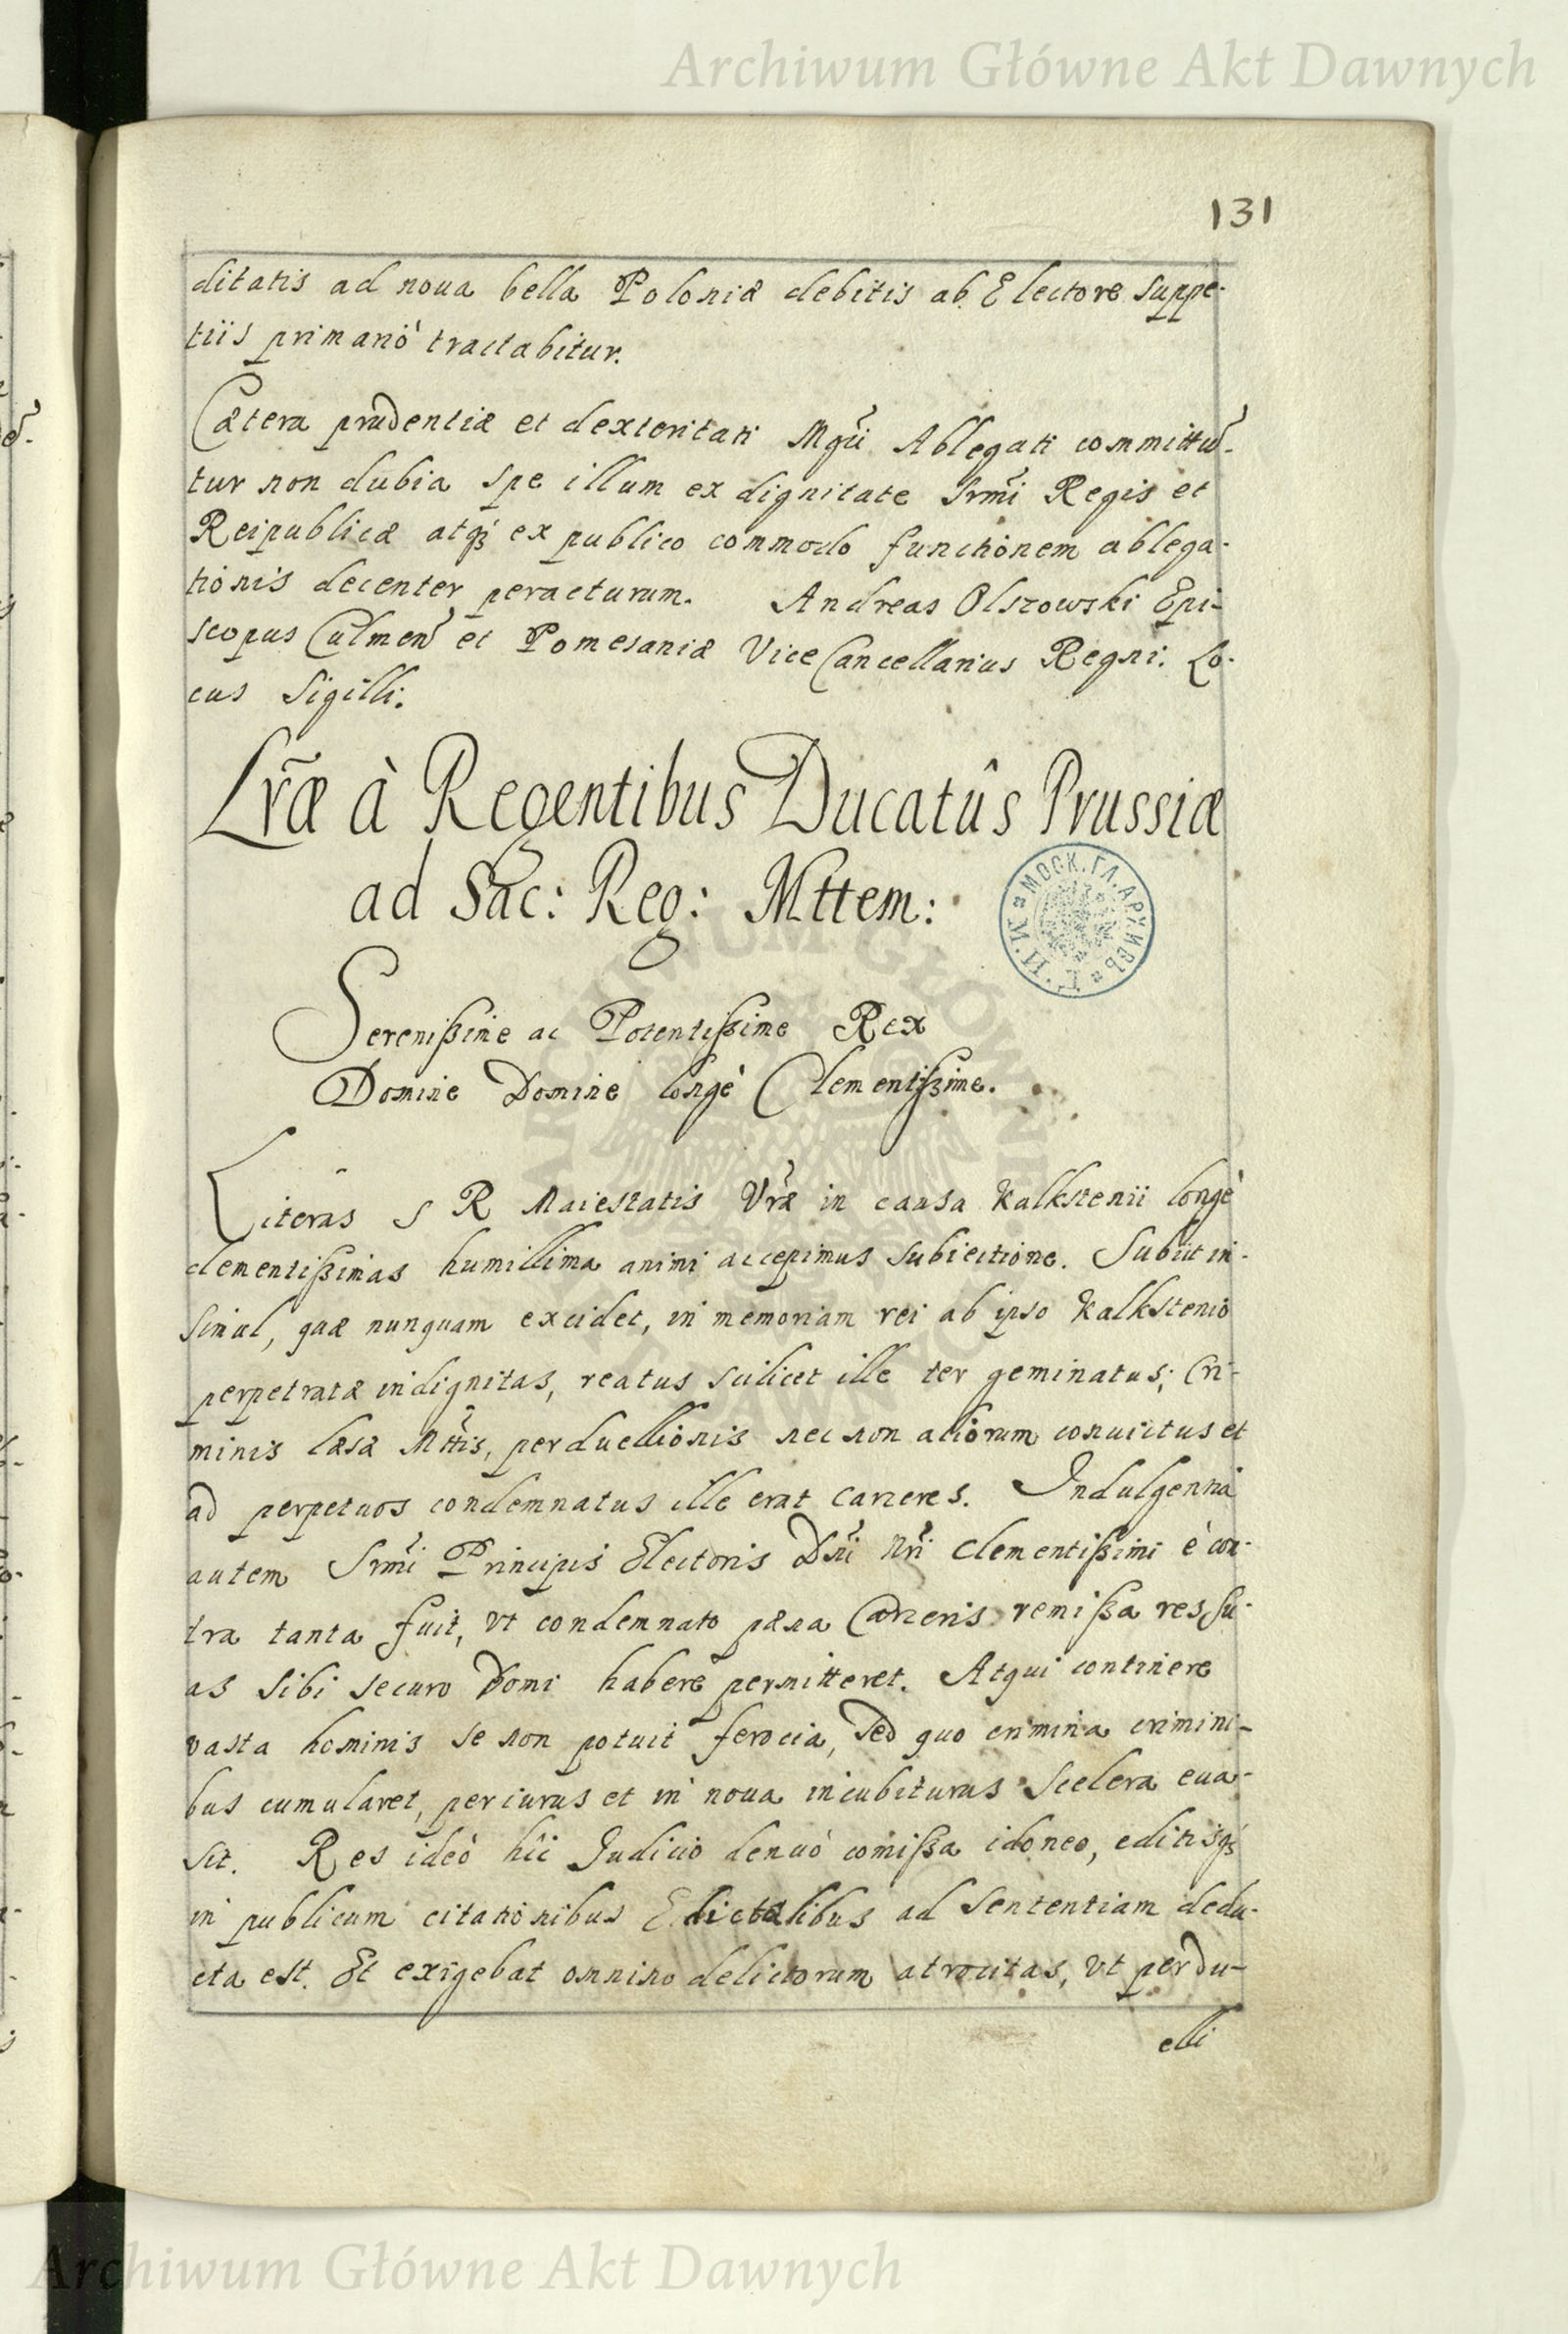 Archiwum Główne Akt Dawnych
131
ditatis ad noua bella Poloniæ debitis ab Electore suppe-
tiis primariò tractabitur.
Cætera prudentiæ et dexteritati Mgci Ablegati committũ-
tur non dubia spe illum ex dignitate Srmi Regis et
Reipublicæ atq3 ex publico commodo functionem ablega-
tionis decenter peracturum. Andreas Olszowski Epi-
scopus Culmen et Pomesaniæ Vice Cancellarius Regni. Lo-
cus Sigilli.
Lr̃æ à Regentibus Ducatûs Prussiæ
ad Sac: Reg: Mttem:
МОСК. ГЛ. АРХИВЪ
Serenißime ac Potentißime Rex
Domine Domine longè Clementißime.
Literas S R Maiestatis Vræ in causa Kalkstenii longè
clementißimas humillima animi accepimus subiectione. Subiit in-
simul, quæ nunquam excidet, in memoriam rei ab ipso Kalkstenio
perpetratæ indignitas, reatus scilicet ille ter geminatus; Cri-
minis læsæ Mttis, perduellionis nec non aliorum conuictus et
ad perpetuos condemnatus ille erat carceres. Indulgentia
autem Srmi Principis Electoris Dni Nri Clementißimi è con-
tra tanta fuit, vt condemnato pæna Carceris remißa res su-
as sibi securo Domi habere permitteret. Atqui continere
vasta hominis se non potuit ferocia, sed quo crimina crimini-
bus cumularet, periurus et in noua incubiturus scelera eua-
sit. Res ideò hîc Iudicio denuò comißa idoneo, editisq3
in publicum citationibus Edictalibus ad sententiam dedu-
cta est. Et exigebat omnino delictorum atrocitas, vt perdu-
elli
Archiwum Główne Akt Dawnych